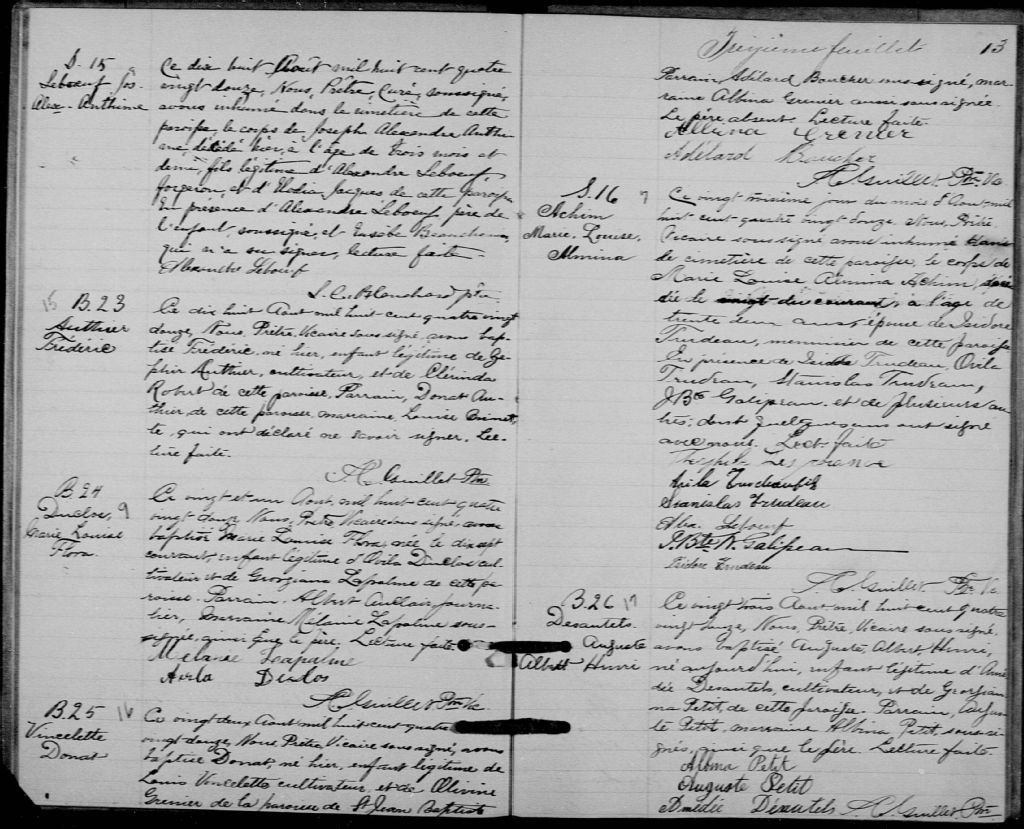 S. 15
Leboeuf Jos.
Alex. Anthime
Ce dix huit Août mil huit cent quatre
vingt douze, Nous, Prêtre, Curé, soussigné,
avons inhumé dans le cimetière de cette
paroisse, le corps de Joseph Alexandre Anthi-
me, décédé hier, à l'âge de trois mois et
demi, fils légitime d'Alexandre Leboeuf,
forgeron, et d'Elodia Jacques de cette paroisse
En présence d'Alexandre Leboeuf père de
l'enfant, soussigné, et Eusèbe Beauchamp,
qui n'a su signer, lecture faite.
Alexandre Leboeuf
B. 23
15
Authier
Frédéric
Ce dix huit Aout mil huit cent quatre vingt
douze, Nous, Prêtre, Vicaire sous signé, avons bap-
tisé Frédéric, né hier, enfant légitime de Zé-
phir Authier, cultivateur, et de Clérinda
Robert de cette paroisse. Parrain, Donat Au-
thier, de cette paroisse, marraine, Louise
te, qui ont déclaré ne savoir signer. Lec-
ture faite.
A. C. Guillet Ptre
B. 24
Duclos, 9
Marie Louise
Flora.
Ce vingt et un Aout, mil huit cent quatre
vingt douze, Nous, Prêtre, Vicaire sous signé, avons
baptisé Marie Louise Flora, née le dix sept
courant, enfant légitime d'Ovila Duclos cul-
tivateur et de Georgiana Lapalme de cette pa-
roisse. Parrain, Albert Auclair, journa-
lier, marraine Mélanie Lapalme sous-
signée, ainsi que le père. Lecture faite
Melanie Lapalme
Avila Duclos
A. C. Guillet Ptre Vic
B. 25 16
Vincelette
Donat
Ce vingt deux Aout mil huit cent quatre
vingt douze, Nous Prêtre Vicaire sous signé, avons
baptisé Donat, né hier, enfant légitime de
Louis Vincelette cultivateur, et de Olivine
Grenier de la paroisse de St Jean Baptiste
Treizième feuillet 13
Parrain, Adélard Boucher sous signé, mar-
raine Albina Grenier aussi sous signée.
Le père absent. Lecture faite.
Albina Grenier
Adélard Boucher
A. C. Guillet Ptre Vic
S. 16
Achim
Marie. Louise.
Almina
Ce vingt troisième jour du mois d'Aout mil
huit cent quatre vingt douze. Nous, Prêtre,
Vicaire sous signé avons inhumé dans
le cimetière de cette paroisse, le corps de
Marie Louise Almina Achim, décé
dée le vingt du courant, à l'âge de
trente deux ans, épouse de Isidore
Trudeau, menuisier de cette paroisse
En présence de Isidore Trudeau, Ovila
Trudeau, Stanislas Trudeau,
J. Bte Galipeau et de plusieurs au
tres, dont quelques uns ont signé
avec nous. Lect. faite
Avila Trudeau
Stanislas Trudeau
Alex. Leboeuf
J. Bte N. Galipeau
Isidore Trudeau
A. C. Guillet. Ptre Vic
B. 26 17
Desautels.
Auguste
Albert Henri
Ce vingt trois Aout mil huit cent quatre
vingt douze, Nous, Prêtre, Vicaire sous signé,
avons baptisé Auguste, Albert, Henri,
né aujourd'hui, enfant légitime d'Amé
dée Desautels, cultivateur, et de Georgian
na Petit, de cette paroisse. Parrain, Augus
te Petit, marraine Albina Petit, sous si-
gnés, ainsi que le père. Lecture faite
Albina Petit
Auguste Petit
Amédée Désautels A. C. Guillet Ptre